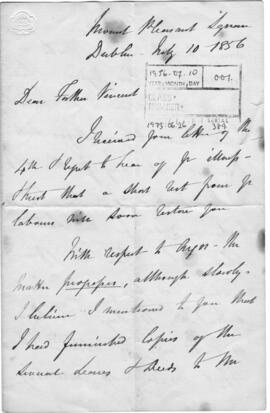 Mount Pleasant Square
Dublin July 10 - 1856
1856-07-10
YEAR, MONTH, DAY
001.
Dear Father Vincent
I received your letter of the
4th & regret to hear of yr illness -
I trust that a short rest from yr
labours will soon restore you
With respect to - the
matter progresses, although slowly -
I believe I mentioned to you that
I had furnished Copies of the
several Leases & Deeds to Mr